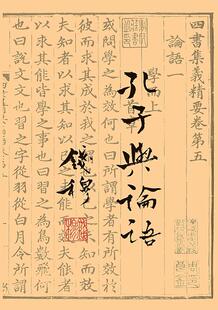 孔子與論語
錢穆
四書集義精要卷第五
論語一
學而上
何也曰所謂學者有所效於
而求其成於我之 未知而效
夫知者以求其知以 效夫能者
以求其能皆學之事也曰習之為鳥數飛何
也曰說文文也習之字從羽從白月令所謂